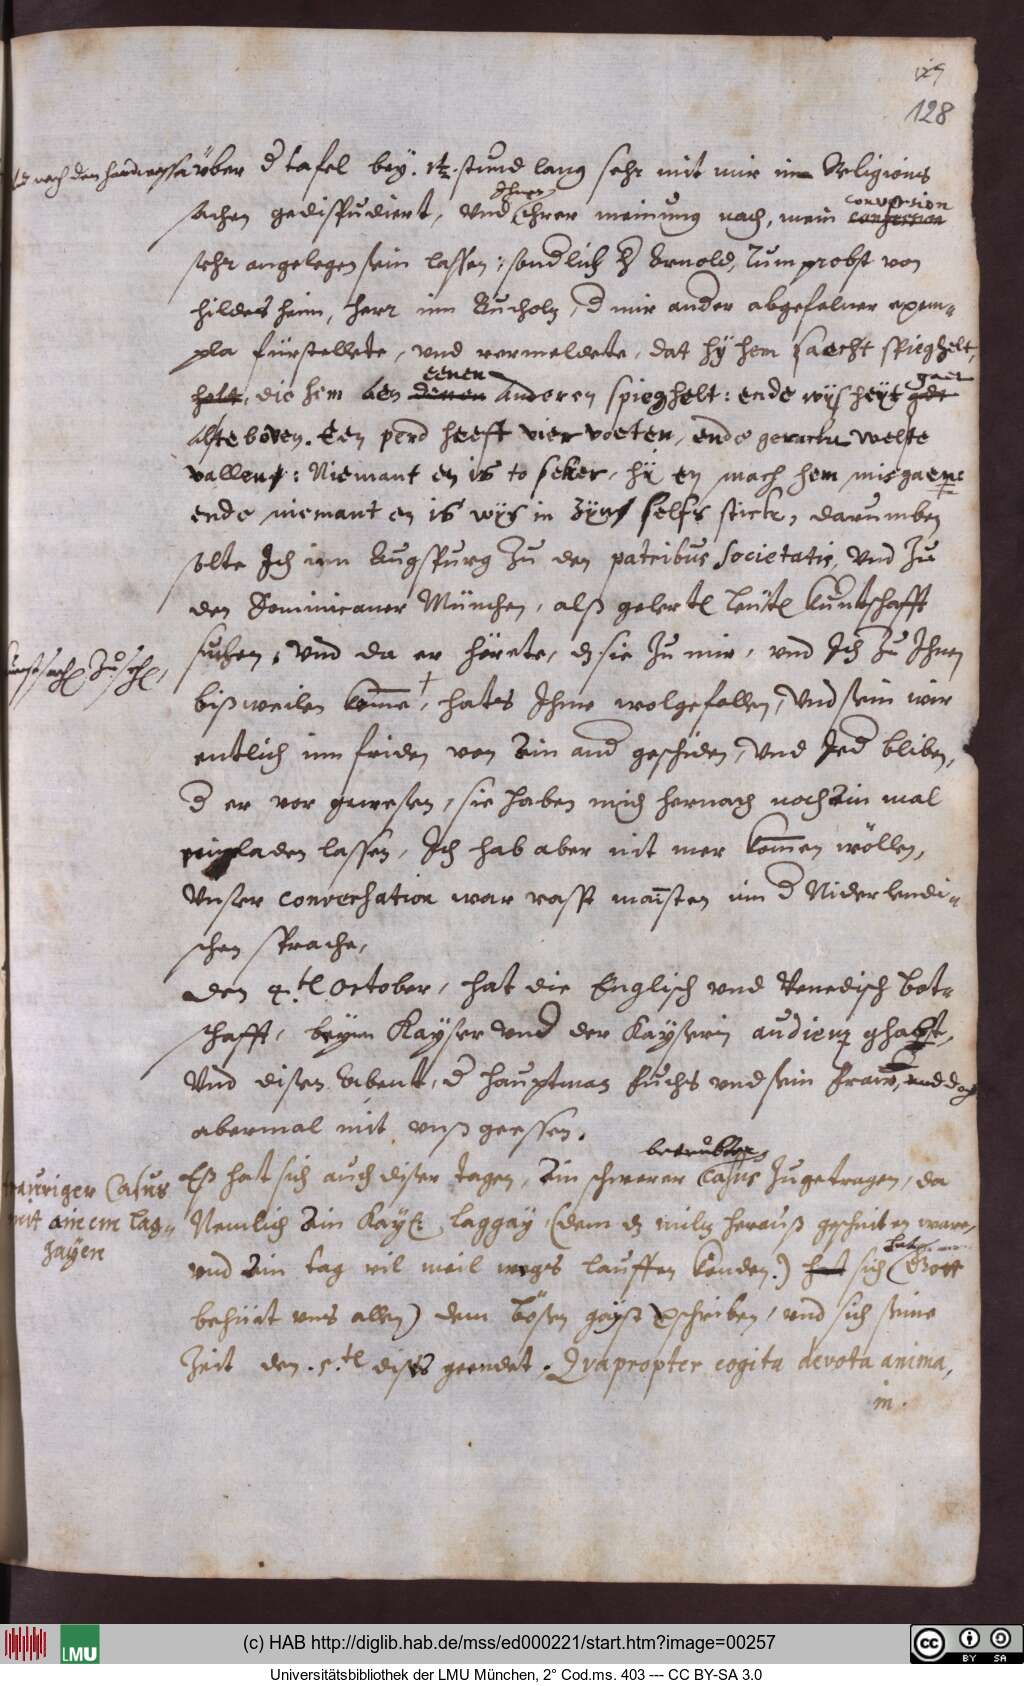 128
über d tafel bey. 1½. stund lang sehr mit mir inn Religions
sachen gedisputiert, vnd Ihnen (ihrer meinung nach, mein conversion confession
sehr angelegen sein lassen: sondlich H Arnold, Tumprobst von
hildesheim, herr im Bucholz, d mir ander abgefalner exem=
pla fürstellete, vnd vermeldete, dat hÿ hem saecht spieghelt,
helt, die hem aen eenen denen anderen spieghelt: ende wijsheÿt gaet gdt
alteboven. Een perd heeft vier voeten, ende
vallen: Niemant en is to seker, hÿ en mach hem misgaen:
ende niemant en is wijs in zÿns selfs stück, darumben
solte Ich inn Augspurg zu den patribus Societatis, vnd zu
den Dominicaner München, alß gelerte leüte kuntschafft
suchen, vnd da er hörete, dz sie zu mir, vnd Ich zu Ihnen
bißweilen komme †, hats Ihme wolgefallen, vnd sein wir
entlich im friden von Ein and geschiden, vnd Jed bliben,
d er vor gewesen, sie haben mich hernach noch Ein mal
einladen lassen, Ich hab aber nit mer kommen wöllen,
Vnser conversation war vasst maisten im d Niderlendi=
schen sprache,
Den 4.ten October, hat die Englisch vnd Venedisch bot=
schafft, beÿm Kaÿser vnd der Kaÿserin audienz ghabt,
Vnd disen Abent, d hauptman Fuchs vnd sein fraw,
abermal mit vnß geessen.
betrübter
Eß hat sich auch diser tagen, Ein schwerer Casus zugetragen, da
trauriger Casus
mit ainem lag=
gayen
Nemlich Ein Kaÿs: laggay, (dem dz milz herauß geschniten ware,
vnd Ein tag vil meil wegs lauffen konden.) hat sich (Gott
behüt vns allen) dem bösen gayst verschriben, vnd sich seine
Zeit den .5.ten diß geendet. Qvapropter cogita devota anima,
in.
(c) HAB http://diglib.hab.de/mss/ed000221/start.htm?image=00257
LMU
BY SA
Universitätsbibliothek der LMU München, 2° Cod.ms. 403 --- CC BY-SA 3.0